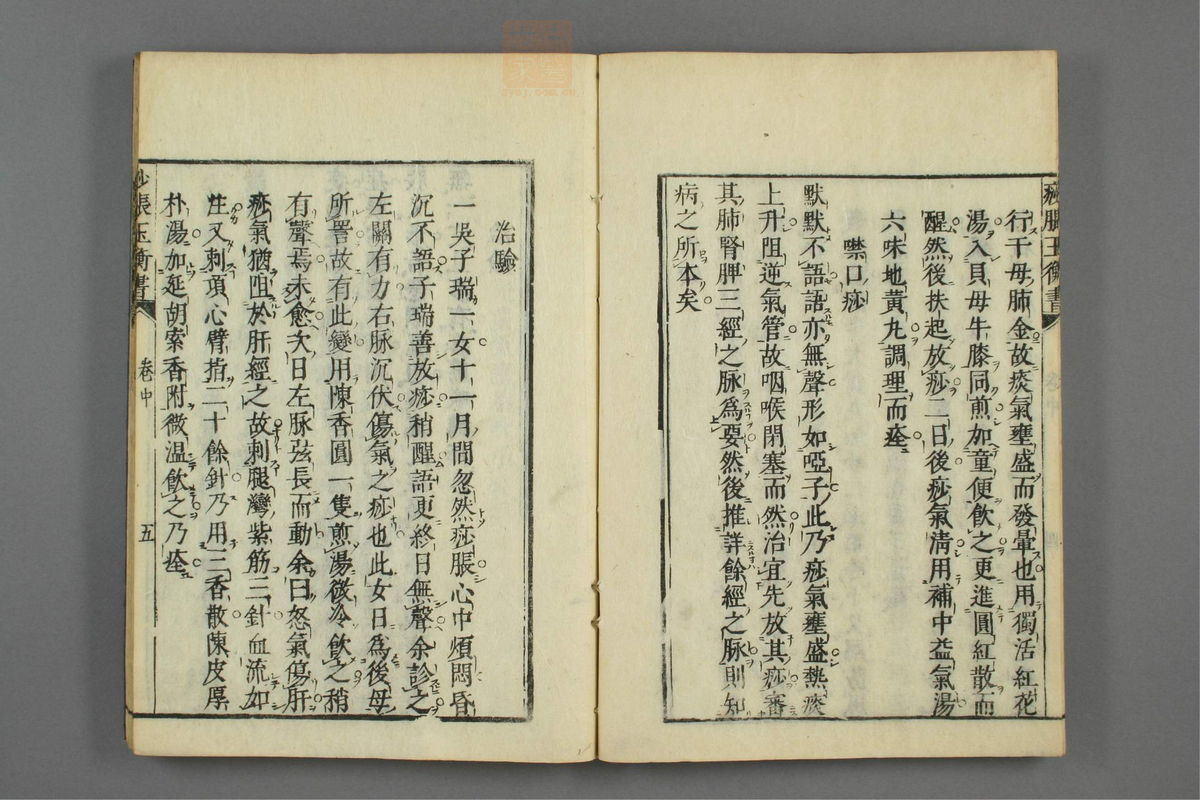 痧脹玉衡書
行干母肺金故痰氣壅盛而發暈也用獨活紅花
湯入貝母牛膝同煎加童便飲之更進圓紅散而
醒然後扶起放痧二日後痧氣清用補中益氣湯
六味地黃丸調理而痊
噤口痧
默默不語語亦無聲形如啞子此乃痧氣壅盛熱痰
上升阻逆氣管故咽喉閉塞而然治宜先放其痧審
其肺腎脾三經之脉爲要然後推詳餘經之脉則知
病之所本矣
治驗
一吳子瑞一女十一月間忽然痧脹心中煩悶昏
沉不語子瑞善放痧稍醒語更終日無聲余診之
左關有力右脉沉伏傷氣之痧也此女日爲後母
所詈故有此變用陳香圓一隻煎湯微冷飲之稍
有聲焉未愈次日左脉弦長而動余曰怒氣傷肝
痧氣猶阻於肝經之故刺腿灣紫筋三針血流如
注又刺頂心臂指二十餘針乃用三香散陳皮厚
朴湯加延胡索香附微温飲之乃痊
痧脹玉衡書
卷中
五